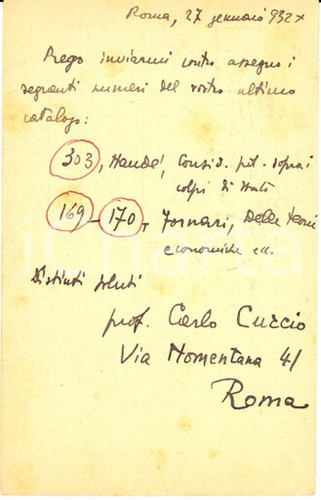 Roma, 27 gennaio 932 X
Prego inviarmi contro assegno i
seguenti numeri del vostro ultimo
catalogo:
303, Naudé, Consid. pol. sopra i
colpi di Stato
169 - 170, Fornari, Delle teorie
economiche ecc.
Distinti saluti
prof. Carlo Curcio
Via Nomentana 41
Roma